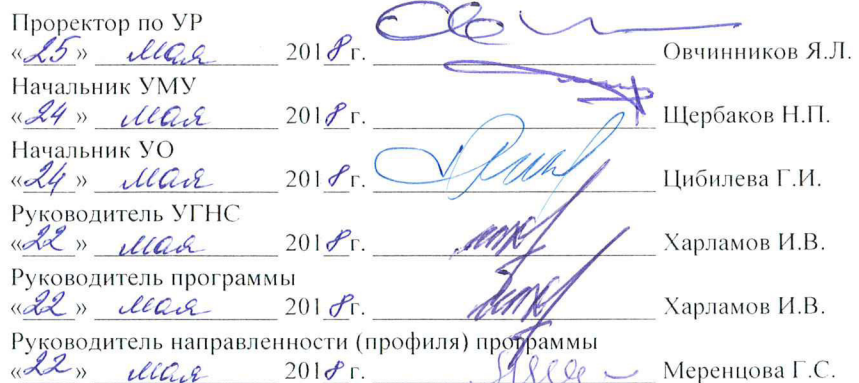 Проректор по УР
«25» мая 2018г. Овчинников Я.Л.
Начальник УМУ
«24» мая 2018г. Щербаков Н.П.
Начальник УО
«24» мая 2018г. Цибилева Г.И.
Руководитель УГНС
«22» мая 2018г. Харламов И.В.
Руководитель программы
«22» мая 2018г. Харламов И.В.
Руководитель направленности (профиля) программы
«22» мая 2018г. Меренцова Г.С.